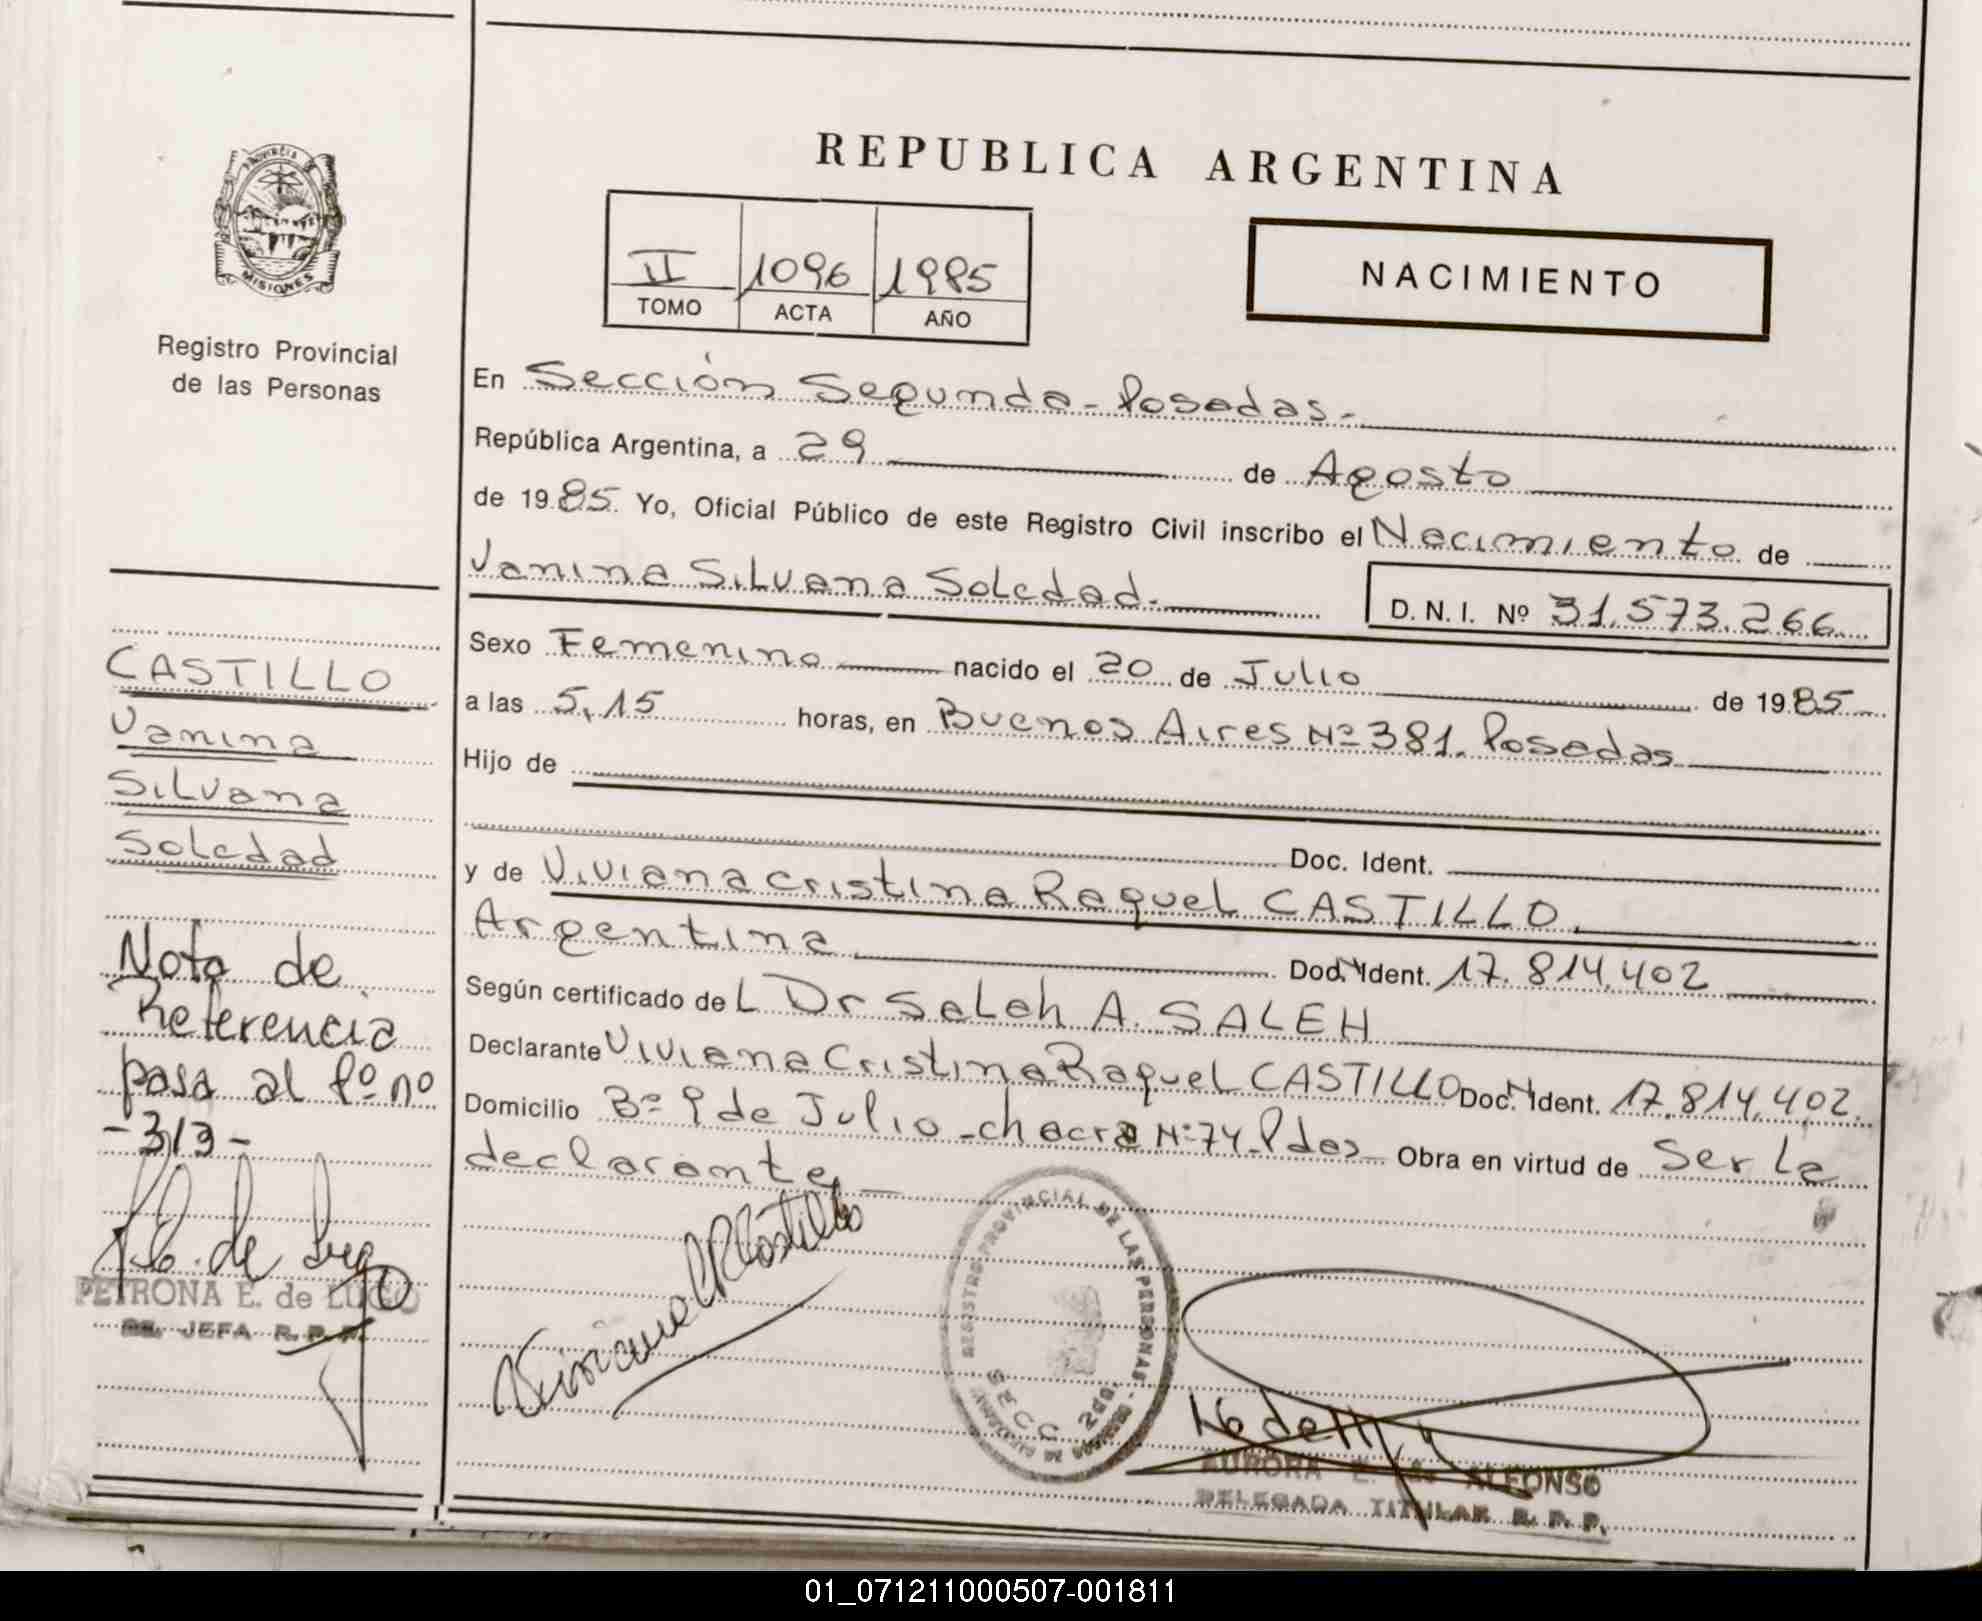 PROVINCIA
MISIONES
Registro Provincial
de las Personas
CASTILLO
Vanina
Silvana
Soledad
Nota de
Referencia
pasa al fº nº
-313-
PETRONA E. de LUGO
JEFA R. P. P.
REPUBLICA ARGENTINA
II 1096 1985
TOMO ACTA AÑO
NACIMIENTO
En Sección Segunda - Posadas.-
República Argentina, a 29 de Agosto
de 1985. Yo, Oficial Público de este Registro Civil inscribo el Nacimiento de
Vanina Silvana Soledad.- D. N. I. Nº 31.573.266
Sexo Femenino nacido el 20 de Julio de 1985
a las 5,15 horas, en Buenos Aires Nº 381. Posadas
Hijo de
Doc. Ident.
y de Viviana Cristina Raquel CASTILLO.
Argentina Doc. Ident. 17.814.402
Según certificado de L Dr Saleh A. SALEH
Declarante Viviana Cristina Raquel CASTILLO Doc. Ident. 17.814.402.
Domicilio Bº 9 de Julio - chacra Nº 74 - Pdas Obra en virtud de Ser la
declarante
REGISTRO PROVINCIAL DE LAS PERSONAS
SECC 2da.
AURORA ALFONSO
DELEGADA TITULAR R. P. P.
01_071211000507-001811